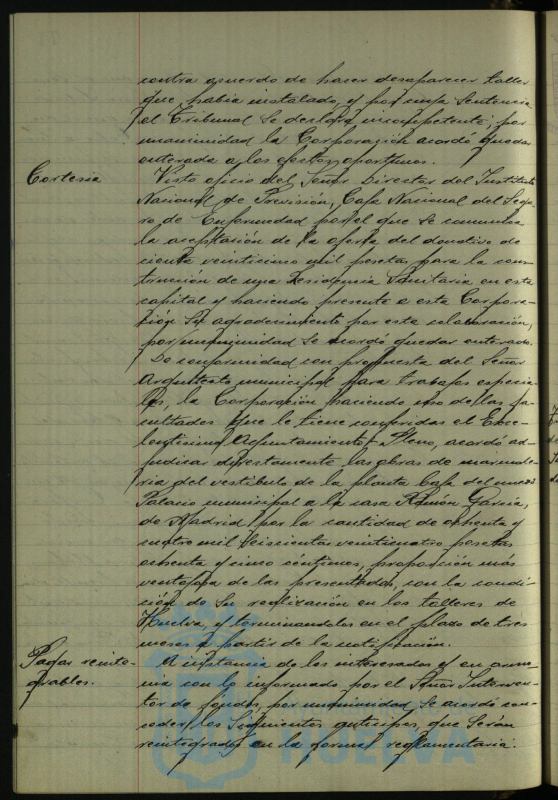 contra acuerdo de hacer desaparecer taller
que había instalado, y por cuya Sentencia
el Tribunal se declara incompetente, por
unanimidad la Corporación acordó quedar
enterada a los efectos oportunos.
Cortesia
Visto oficio del Señor Director del Instituto
Nacional de Previsión, Caja Nacional del Segu-
ro de Enfermedad por el que se comunica
la aceptación de la oferta del donativo de
ciento veinticinco mil pesetas para la cons-
trucción de una Residencia Sanitaria en esta
capital y haciendo presente a esta Corpora-
ción su agradecimiento por esta colaboración,
por unanimidad se acordó quedar enterada.
De conformidad con propuesta del Señor
Arquitecto municipal para trabajos especia-
les, la Corporación haciendo uso de las fa-
cultades que le tiene conferidas el Exce-
lentisimo Ayuntamiento Pleno, acordó ad-
judicar directamente las obras de marmole-
ria del vestibulo de la planta baja del nuevo
Palacio municipal a la casa Ramón Garcia,
de Madrid por la cantidad de ochenta y
cuatro mil seiscientas veinticuatro pesetas
ochenta y cinco céntimos, proposición más
ventajosa de las presentadas, con la condi-
ción de su realización en los talleres de
Huelva, y terminandolas en el plazo de tres
meses a partir de la notificación.
Pagas reinte-
grables.
A instancia de los interesados y en armo-
nia con lo informado por el Señor Interven-
tor de fondos, por unanimidad, se acordó con-
ceder los siguientes anticipos, que serán
reintegrados en la forma reglamentaria.
HUELVA